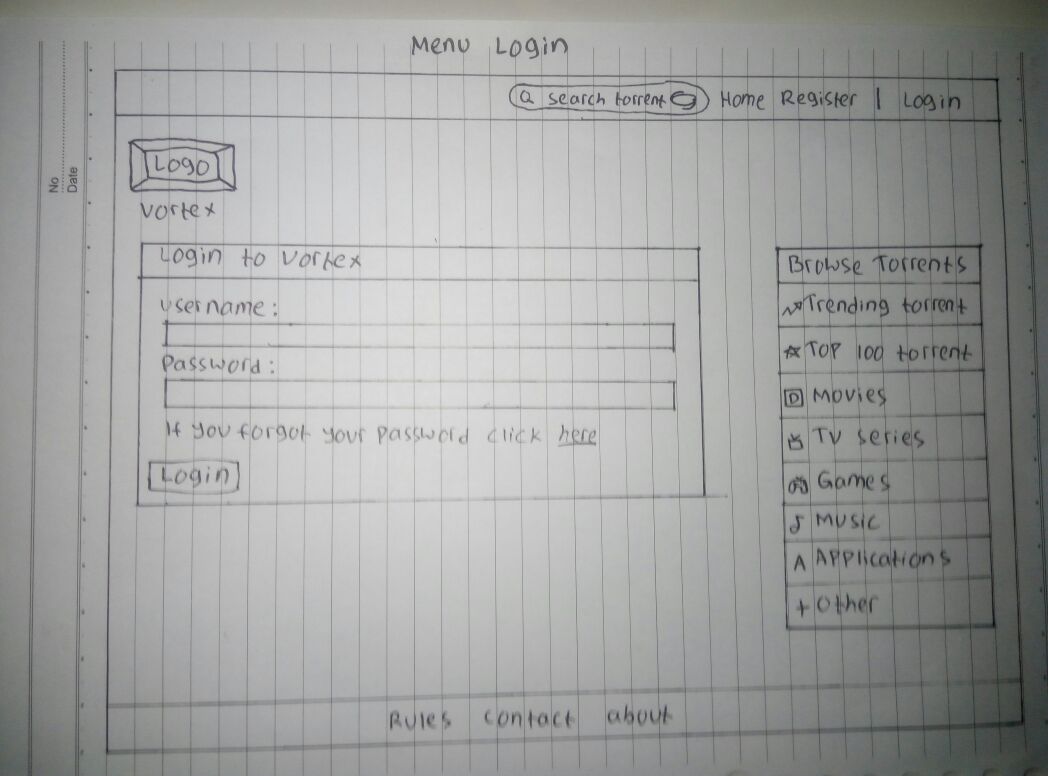 Menu Login
Search torrent Home Register | Login
LOGO
Vortex
Login to Vortex
Username:
Password:
If you forgot your password click here
Login
Browse Torrents
Trending torrent
TOP 100 torrent
Movies
TV series
Games
Music
A Applications
+ Other
Rules contact about
No
Date